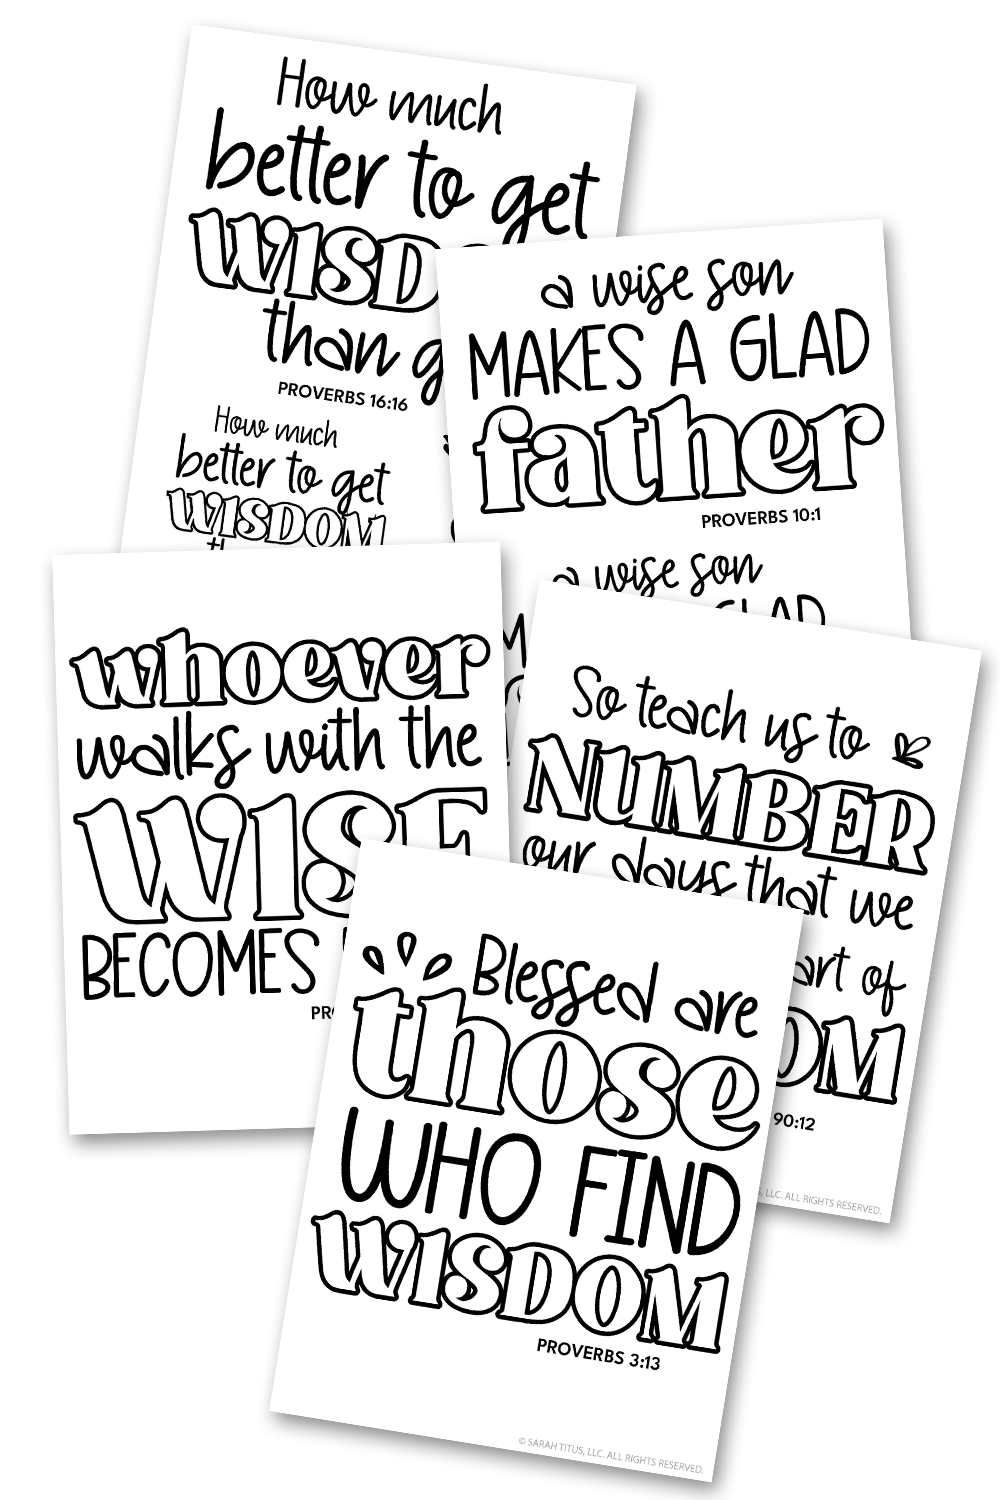 How much
better to get
than
PROVERBS 16:16
How much
better to get
WISDOM
a wise son
MAKES A GLAD
father
PROVERBS 10:1
a wise son
whoever
walks with the
WISE
BECOMES
So teach us to
NUMBER
our days that we
of
90:12
LLC. ALL RIGHTS RESERVED.
Blessed are
those
WHO FIND
WISDOM
PROVERBS 3:13
© SARAH TITUS, LLC. ALL RIGHTS RESERVED.